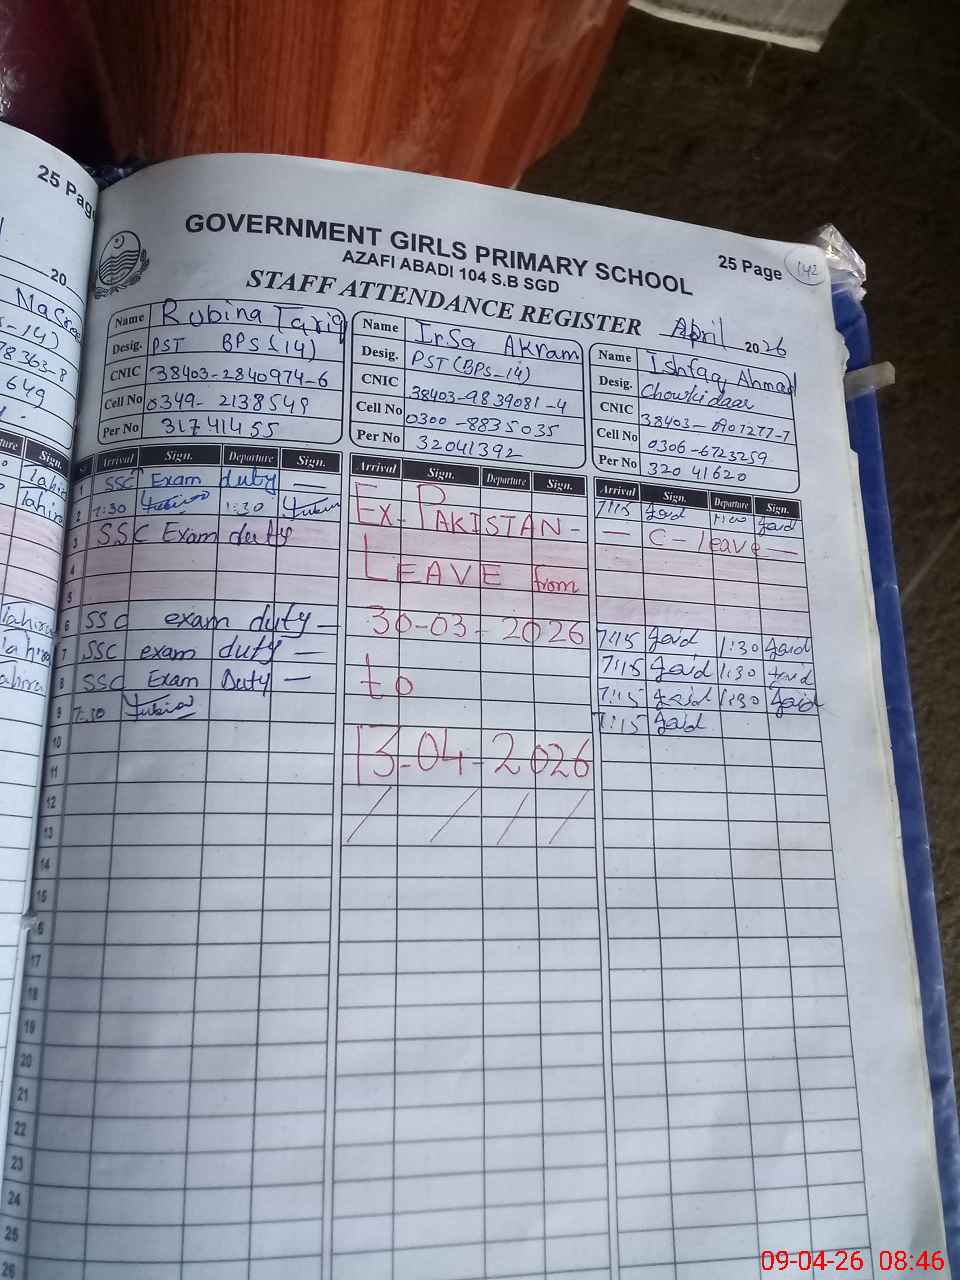 25 Page
20
GOVERNMENT GIRLS PRIMARY SCHOOL
AZAFI ABADI 104 S.B SGD
25 Page 142
STAFF ATTENDANCE REGISTER April 2026
Name Rubina Tariq
Desig. PST BPS (14)
CNIC 38403-2840974-6
Cell No 0349-2138549
Per No 31741455
Name Irsa Akram
Desig. PST (BPS-14)
CNIC 38403-9839081-4
Cell No 0300-8835035
Per No 32041392
Name Ishfaq Ahmad
Desig. Chowkidaar
CNIC 38403-0907277-7
Cell No 0306-6723259
Per No 32041620
Arrival Sign. Departure Sign.
1 SSC Exam duty —
2 7:30 1:30
3 SSC Exam duty
4
5
6 SSC exam duty —
7 SSC exam duty —
8 SSC Exam Duty —
9 7:30
10
11
12
13
14
15
16
17
18
19
20
21
22
23
24
25
26
Arrival Sign. Departure Sign.
Ex-PAKISTAN-
LEAVE from
30-03-2026
to
13-04-2026
/ / / /
Arrival Sign. Departure Sign.
7:15
— C-leave —
7:15 1:30
7:15 1:30
7:15 1:30
7:15
09-04-26 08:46